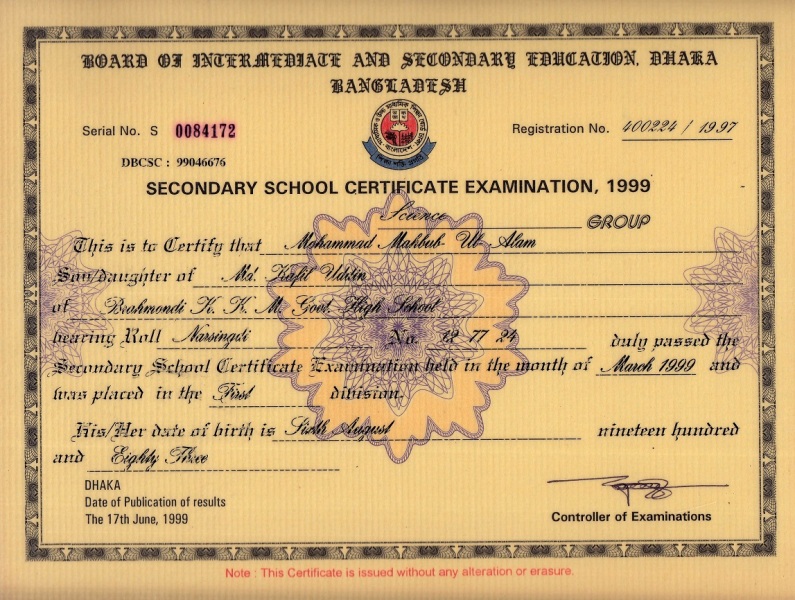 BOARD OF INTERMEDIATE AND SECONDARY EDUCATION, DHAKA
BANGLADESH
Serial No. S 0084172
Registration No. 400224 / 1997
DBCSC : 99046676
SECONDARY SCHOOL CERTIFICATE EXAMINATION, 1999
Science GROUP
This is to Certify that Mohammad Mahbub- Ul- Alam
Son/daughter of Md. Kafil Uddin
of Brahmondi K. K. M. Govt. High School
bearing Roll Narsingdi No. 12 77 24 duly passed the
Secondary School Certificate Examination held in the month of March 1999 and
was placed in the First division.
His/Her date of birth is Sixth August nineteen hundred
and Eighty Three
DHAKA
Date of Publication of results
The 17th June, 1999
Controller of Examinations
Note : This Certificate is issued without any alteration or erasure.